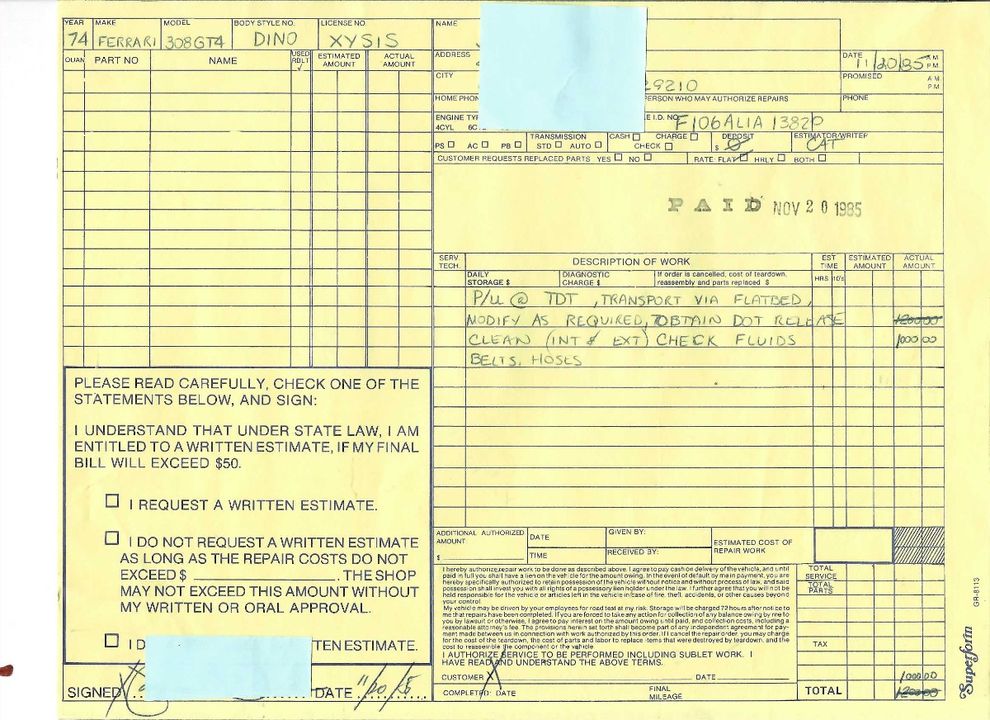 YEAR MAKE MODEL BODY STYLE NO. LICENSE NO. NAME
74 FERRARI 308GT4 DINO XYSIS
QUAN. PART NO NAME USED RBLT √ ESTIMATED AMOUNT ACTUAL AMOUNT
ADDRESS DATE 11/20/85 A.M. P.M.
CITY 29210 PROMISED A.M. P.M.
HOME PHON PERSON WHO MAY AUTHORIZE REPAIRS PHONE
ENGINE TYP E I.D. NO. F106ALIA 1382P
4CYL 6C
PS ☐ AC ☐ PB ☐ TRANSMISSION STD ☐ AUTO ☐ CASH ☐ CHARGE ☐ CHECK ☐ DEPOSIT $ 0 ESTIMATOR/WRITER CAT
CUSTOMER REQUESTS REPLACED PARTS YES ☐ NO ☐ RATE: FLAT ☐ HRLY ☐ BOTH ☐
PAID NOV 20 1985
SERV. TECH. DESCRIPTION OF WORK EST TIME ESTIMATED AMOUNT ACTUAL AMOUNT
DAILY STORAGE $ DIAGNOSTIC CHARGE $ If order is cancelled, cost of teardown, reassembly and parts replaced $ HRS 10'S
P/U @ TDT, TRANSPORT VIA FLATBED,
MODIFY AS REQUIRED, OBTAIN DOT RELEASE 1200 00
CLEAN (INT & EXT) CHECK FLUIDS 1000 00
BELTS. HOSES
PLEASE READ CAREFULLY, CHECK ONE OF THE
STATEMENTS BELOW, AND SIGN:
I UNDERSTAND THAT UNDER STATE LAW, I AM
ENTITLED TO A WRITTEN ESTIMATE, IF MY FINAL
BILL WILL EXCEED $50.
☐ I REQUEST A WRITTEN ESTIMATE.
☐ I DO NOT REQUEST A WRITTEN ESTIMATE
AS LONG AS THE REPAIR COSTS DO NOT
EXCEED $ ____________. THE SHOP
MAY NOT EXCEED THIS AMOUNT WITHOUT
MY WRITTEN OR ORAL APPROVAL.
☐ I D TEN ESTIMATE.
SIGNED X DATE 11/20/85
ADDITIONAL AUTHORIZED AMOUNT $ DATE TIME GIVEN BY: RECEIVED BY: ESTIMATED COST OF REPAIR WORK
I hereby authorize repair work to be done as described above. I agree to pay cash on delivery of the vehicle, and until
paid in full you shall have a lien on the vehicle for the amount owing. In the event of default by main payment, you are
hereby specifically authorized to retain possession of the vehicle without notice and without process of law, and said
possession shall invest you with all rights of a possessory lien holder under the law. I further agree that you will not be
held responsible for the vehicle or articles left in the vehicle in case of fire, theft, accidents, or other causes beyond
your control.
My vehicle may be driven by your employees for road test at my risk. Storage will be charged 72 hours after notice to
me that repairs have been completed. If you are forced to take any action for collection of any balance owing by me to
you by lawsuit or otherwise, I agree to pay interest on the amount owing until paid, and collection costs, including a
reasonable attorney's fee. The provisions herein set forth shall become part of any independent agreement for pay-
ment made between us in connection with work authorized by this order. If I cancel the repair order, you may charge
for the cost of the teardown, the cost of parts and labor to replace items that were destroyed by teardown, and the
cost to reassemble the component or the vehicle.
I AUTHORIZE SERVICE TO BE PERFORMED INCLUDING SUBLET WORK. I
HAVE READ AND UNDERSTAND THE ABOVE TERMS.
CUSTOMER X DATE
COMPLETED: DATE FINAL MILEAGE
TOTAL SERVICE
TOTAL PARTS
TAX
1000 00
TOTAL 1200 00
GR-8113
Superform